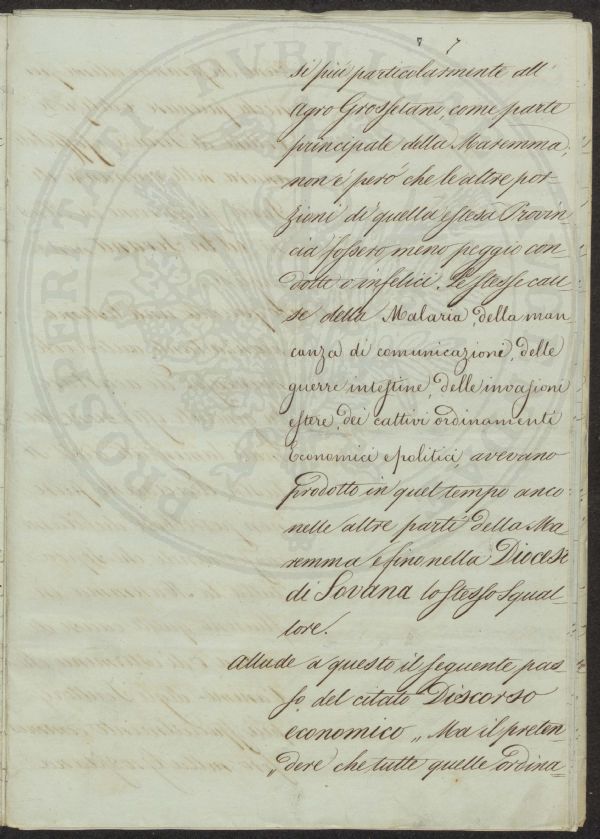 7 7
si più particolarmente all'
Agro Grossetano, come parte
principale della Maremma,
non è però che le altre por-
zioni di quella estesa Provin-
cia fossero meno peggio con-
dotte o infelici. Le stesse cau-
se della Malaria, della man-
canza di comunicazioni, delle
guerre intestine, delle invasioni
estere, dei cattivi ordinamenti
Economici e politici, avevano
prodotto in quel tempo anco
nelle altre parti della Ma-
remma e fino nella Diocesi
di Sovana lo stesso squal-
lore.
Allude a questo il seguente pas-
so, del citato Discorso
economico „ Ma il preten-
„ dere che tutte quelle ordina=
PROSPERITATI PUBLICAE